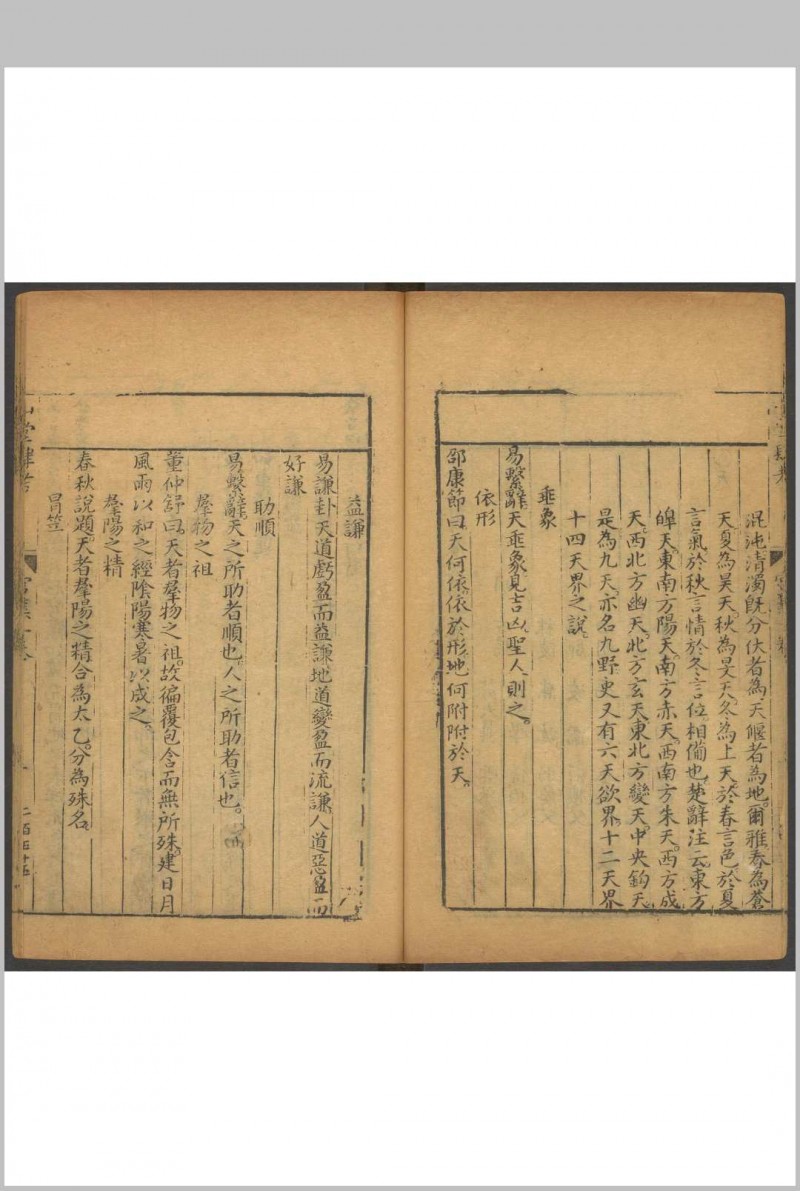 混沌清濁旣分伏者為天偃者為地。爾雅春為蒼
天。夏為昊天。秋為旻天。冬為上天。於春言色於夏
言氣於秋言情於冬言位。相備也。楚辭注云。東方
皥天。東南方陽天。南方赤天。西南方朱天。西方成
天。西北方幽天。北方玄天。東北方變天。中央鈞天。
是為九天。亦名九野。史又有六天欲界。十二天界
十四天界之說。
垂象
易繫辭。天垂象見吉凶。聖人則之。
依形
邵康節曰。天何依。依於形。地何附。附於天。
益謙
易謙卦天道虧盈而益謙。地道變盈而流謙。人道惡盈而
好謙
助順
易繫辭。天之所助者順也。人之所助者信也。
羣物之祖
董仲舒曰。天者羣物之祖。故徧覆包含而無所殊。建日月
風雨以和之。經陰陽寒暑以成之。
羣陽之精
春秋說題。天者羣陽之精。合為太乙。分為殊名。
冐笠
二百五十五